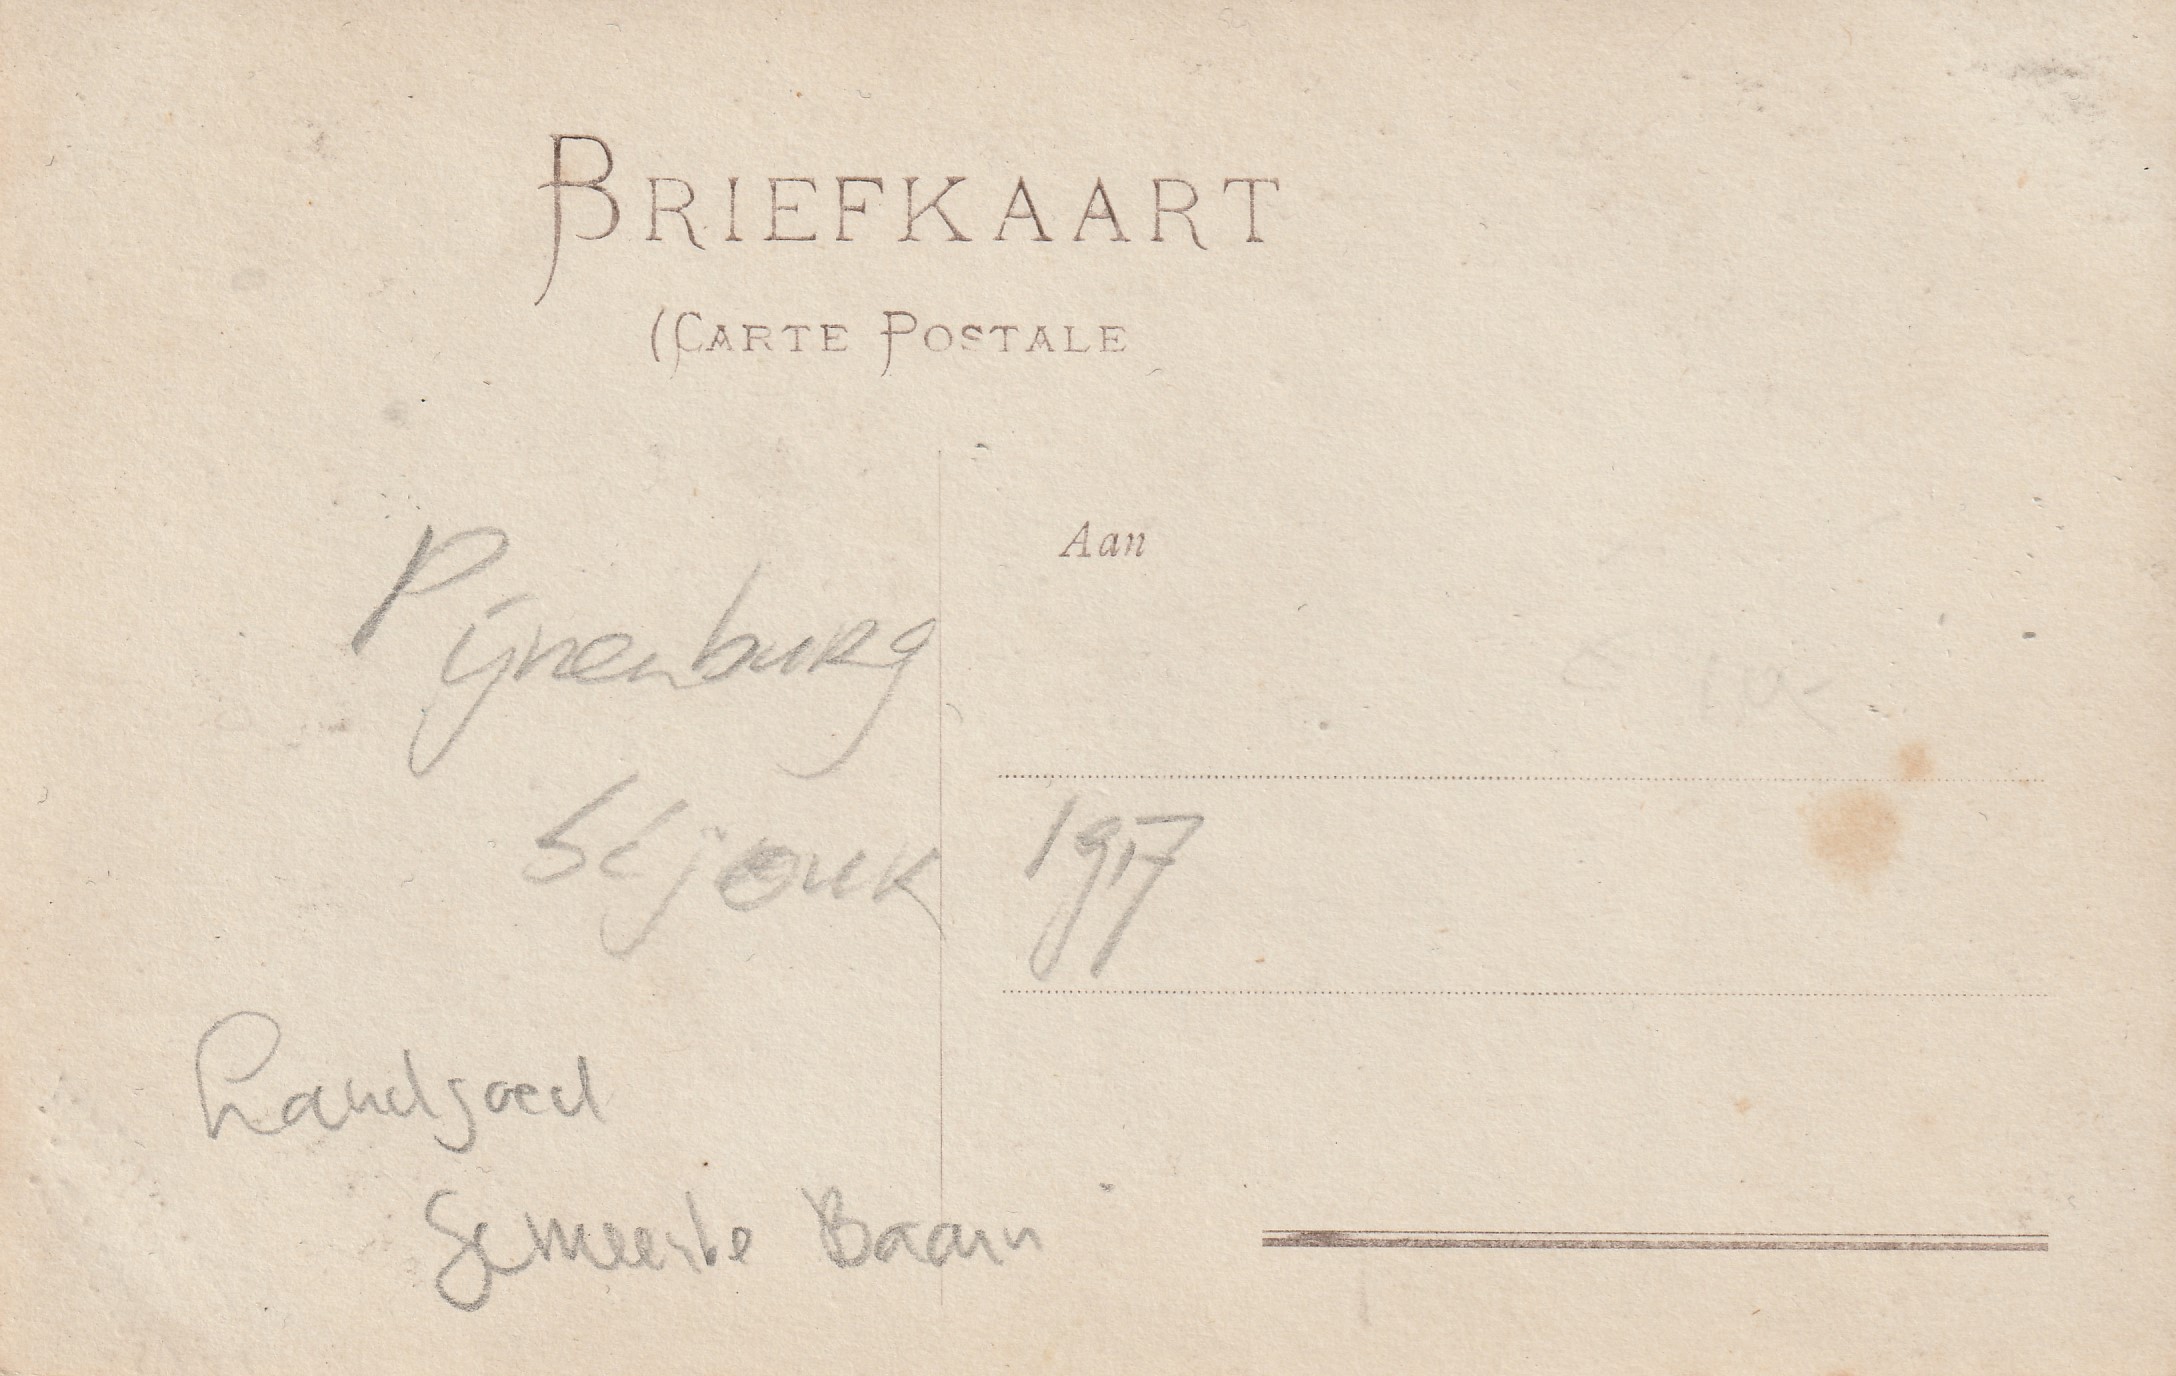 BRIEFKAART
(CARTE POSTALE
Aan
Pijnenburg
Séjour 1917
Landgoed
Gemeente Baarn